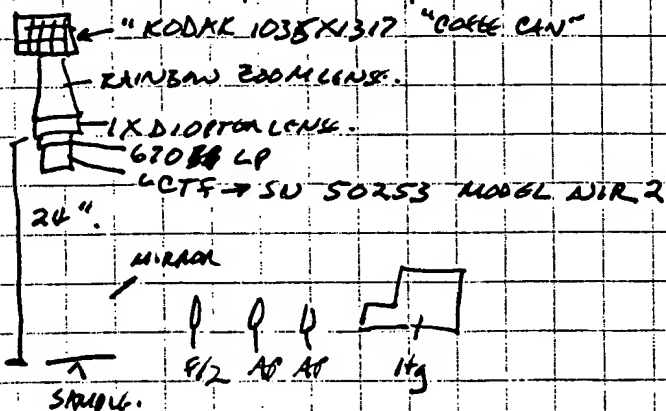 "KODAK 1035X1317 "COFFE CAN"
RAINBOW ZOOM LENS.
1X DIOPTOR LENS.
670 LP
LCTF → SN 50253 MODEL NIR 2
24".
MIRROR
F/2 AP AP Hg
SAMPLE.